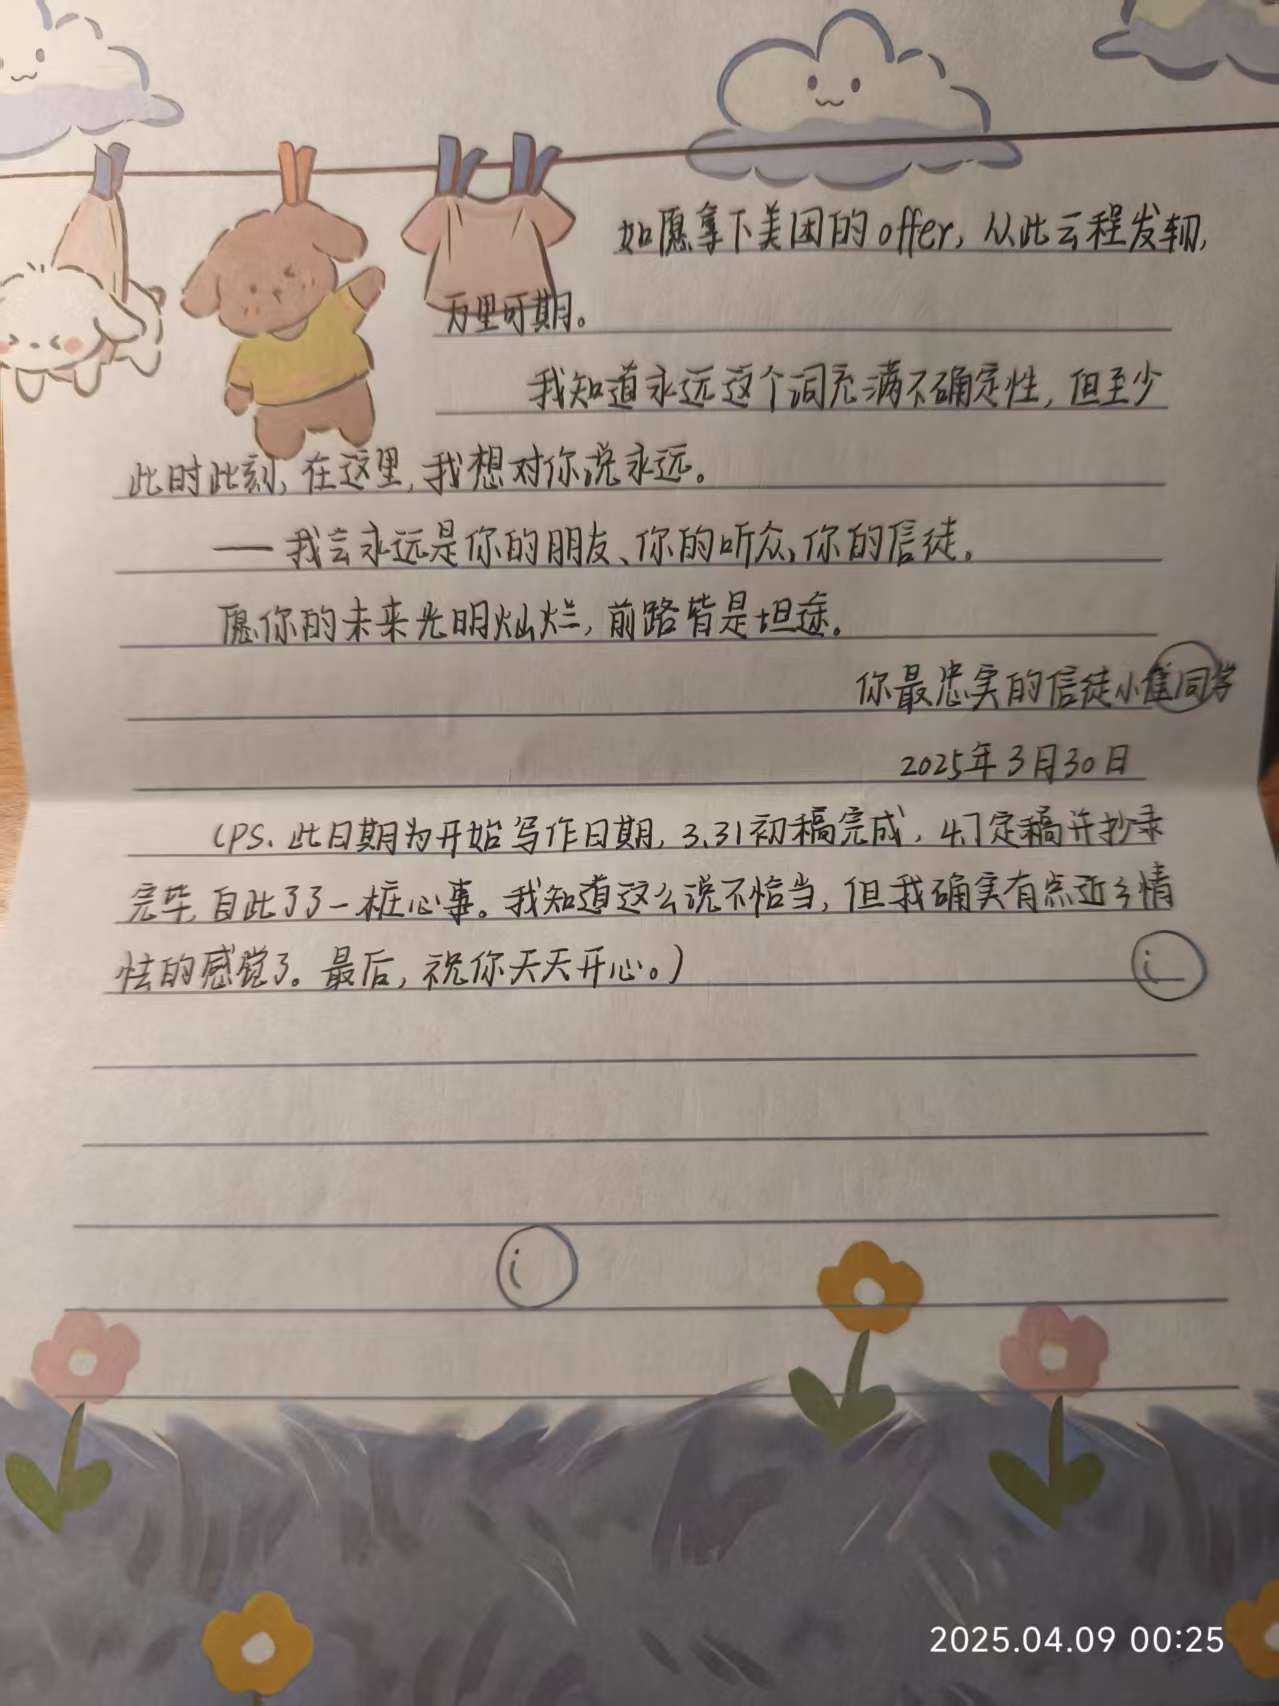 如愿拿下美团的offer，从此云程发轫，
万里可期。
我知道永远这个词充满不确定性，但至少
此时此刻，在这里，我想对你说永远。
——我会永远是你的朋友、你的听众，你的信徒。
愿你的未来光明灿烂，前路皆是坦途。
你最忠实的信徒小崔同学
2025年3月30日
（PS、此日期为开始写作日期，3.31初稿完成，4.7定稿并抄录
完毕，自此了了一桩心事。我知道这么说不恰当，但我确实有点近乡情
怯的感觉了。最后，祝你天天开心。）
2025.04.09 00:25